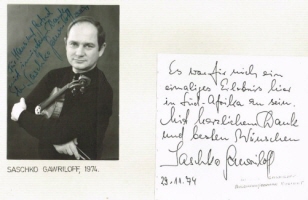 Saschko Gawriloff
SASCHKO GAWRILOFF, 1974.
Es war für mich ein
einmaliges Erlebnis hier
in Süd-Afrika zu sein.
Mit herzlichem Dank
und besten Wünschen
Saschko Gawriloff
29.11.74